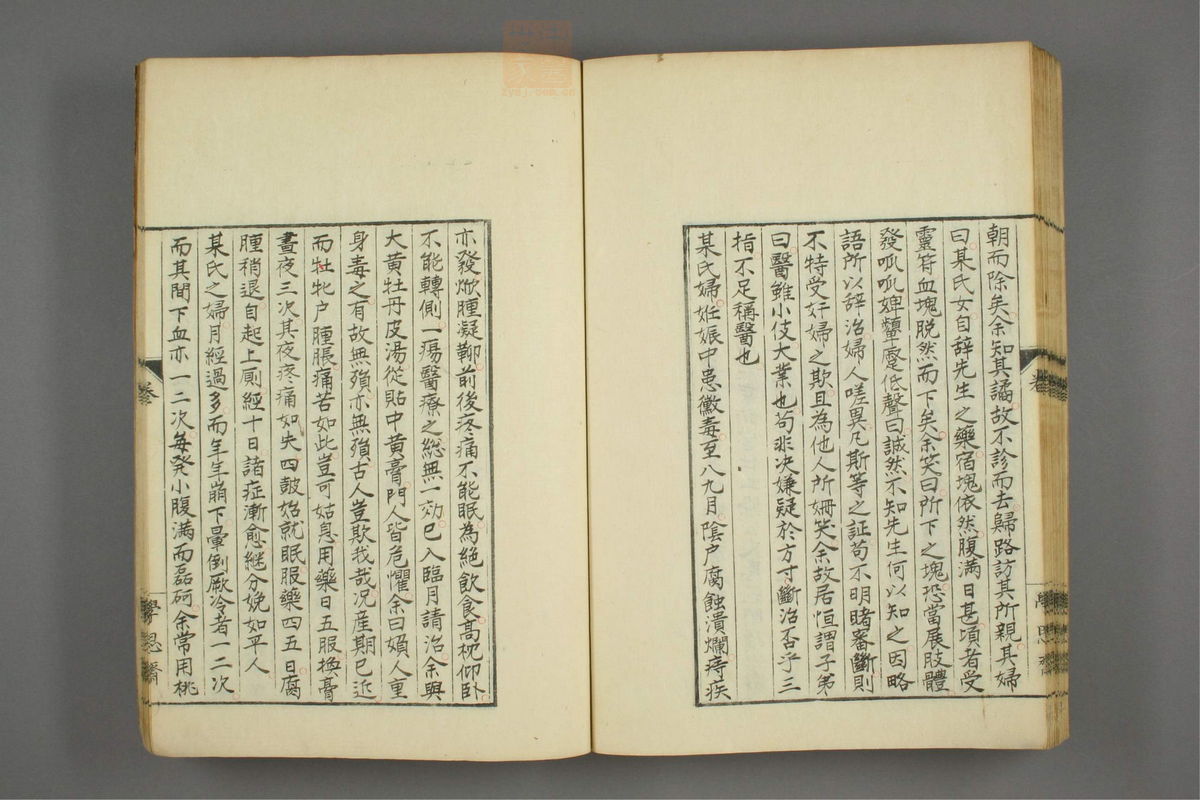 朝而除矣余知其譎故不診而去歸路訪其所親其婦
曰某氏女自辭先生之藥宿塊依然腹滿日甚頃者受
靈符血塊脫然而下矣余笑曰所下之塊恐當展肢體
發呱呱婢顰蹙低聲曰誠然不知先生何以知之因略
語所以辞治婦人嗟異凡斯等之証苟不明睹審斷則
不特受奸婦之欺且為他人所姍笑余故居恒謂子弟
曰醫雖小伎大業也苟非决嫌疑於方寸斷治否乎三
指不足稱醫也
某氏婦妊娠中患黴毒至八九月陰户腐蝕潰爛痔疾
卷
亦發焮腫凝鞕前後疼痛不能眠為絕飲食高枕仰卧
不能轉側一瘍醫療之総無一効已入臨月請治余與
大黄牡丹皮湯從貼中黄膏門人皆危懼余曰婦人重
身毒之有故無殞亦無殞古人豈欺我哉况産期已近
而牡牝户腫脹痛苦如此豈可姑息用藥日五服換膏
晝夜三次其夜疼痛如失四鼓始就眠服藥四五日腐
腫稍退自起上厠經十日諸症漸愈継分娩如平人
某氏之婦月經過多而年年崩下暈倒厥冷者一二次
而其間下血亦一二次每発小腹滿而磊砢余常用桃
卷
學思齋
zysj.com.cn